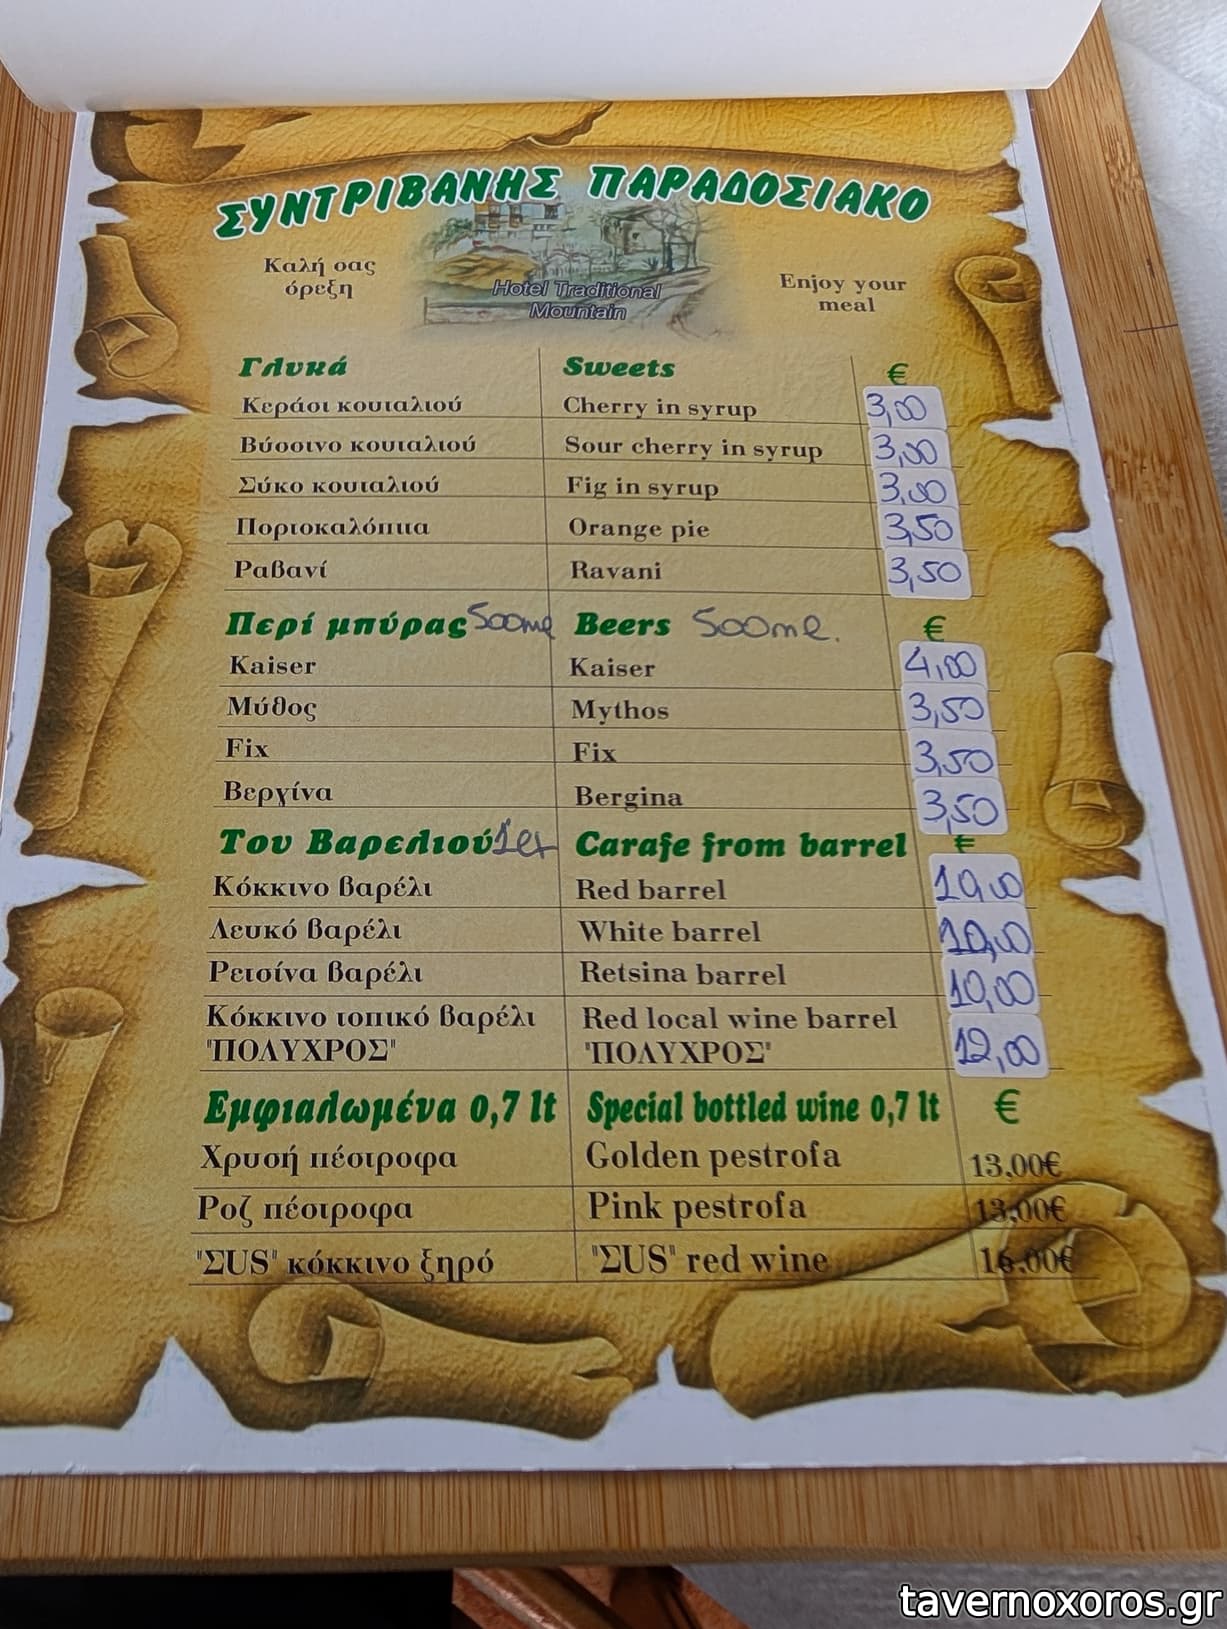 ΣΥΝΤΡΙΒΑΝΗΣ ΠΑΡΑΔΟΣΙΑΚΟ
Καλή σας
όρεξη
Hotel Traditional
Mountain
Enjoy your
meal
Γλυκά Sweets €
Κεράσι κουταλιού Cherry in syrup 3,00
Βύσσινο κουταλιού Sour cherry in syrup 3,00
Σύκο κουταλιού Fig in syrup 3,00
Πορτοκαλόπιτα Orange pie 3,50
Ραβανί Ravani 3,50
Περί μπύρας 500ml Beers 500ml. €
Kaiser Kaiser 4,00
Μύθος Mythos 3,50
Fix Fix 3,50
Βεργίνα Bergina 3,50
Του Βαρελιού 1lt Carafe from barrel €
Κόκκινο βαρέλι Red barrel 10,00
Λευκό βαρέλι White barrel 10,00
Ρετσίνα βαρέλι Retsina barrel 10,00
Κόκκινο τοπικό βαρέλι Red local wine barrel
"ΠΟΛΥΧΡΟΣ" "ΠΟΛΥΧΡΟΣ" 12,00
Εμφιαλωμένα 0,7 lt Special bottled wine 0,7 lt €
Χρυσή πέστροφα Golden pestrofa 13,00€
Ροζ πέστροφα Pink pestrofa 13,00€
"ΣUS" κόκκινο ξηρό "ΣUS" red wine 16,00€
tavernoxoros.gr